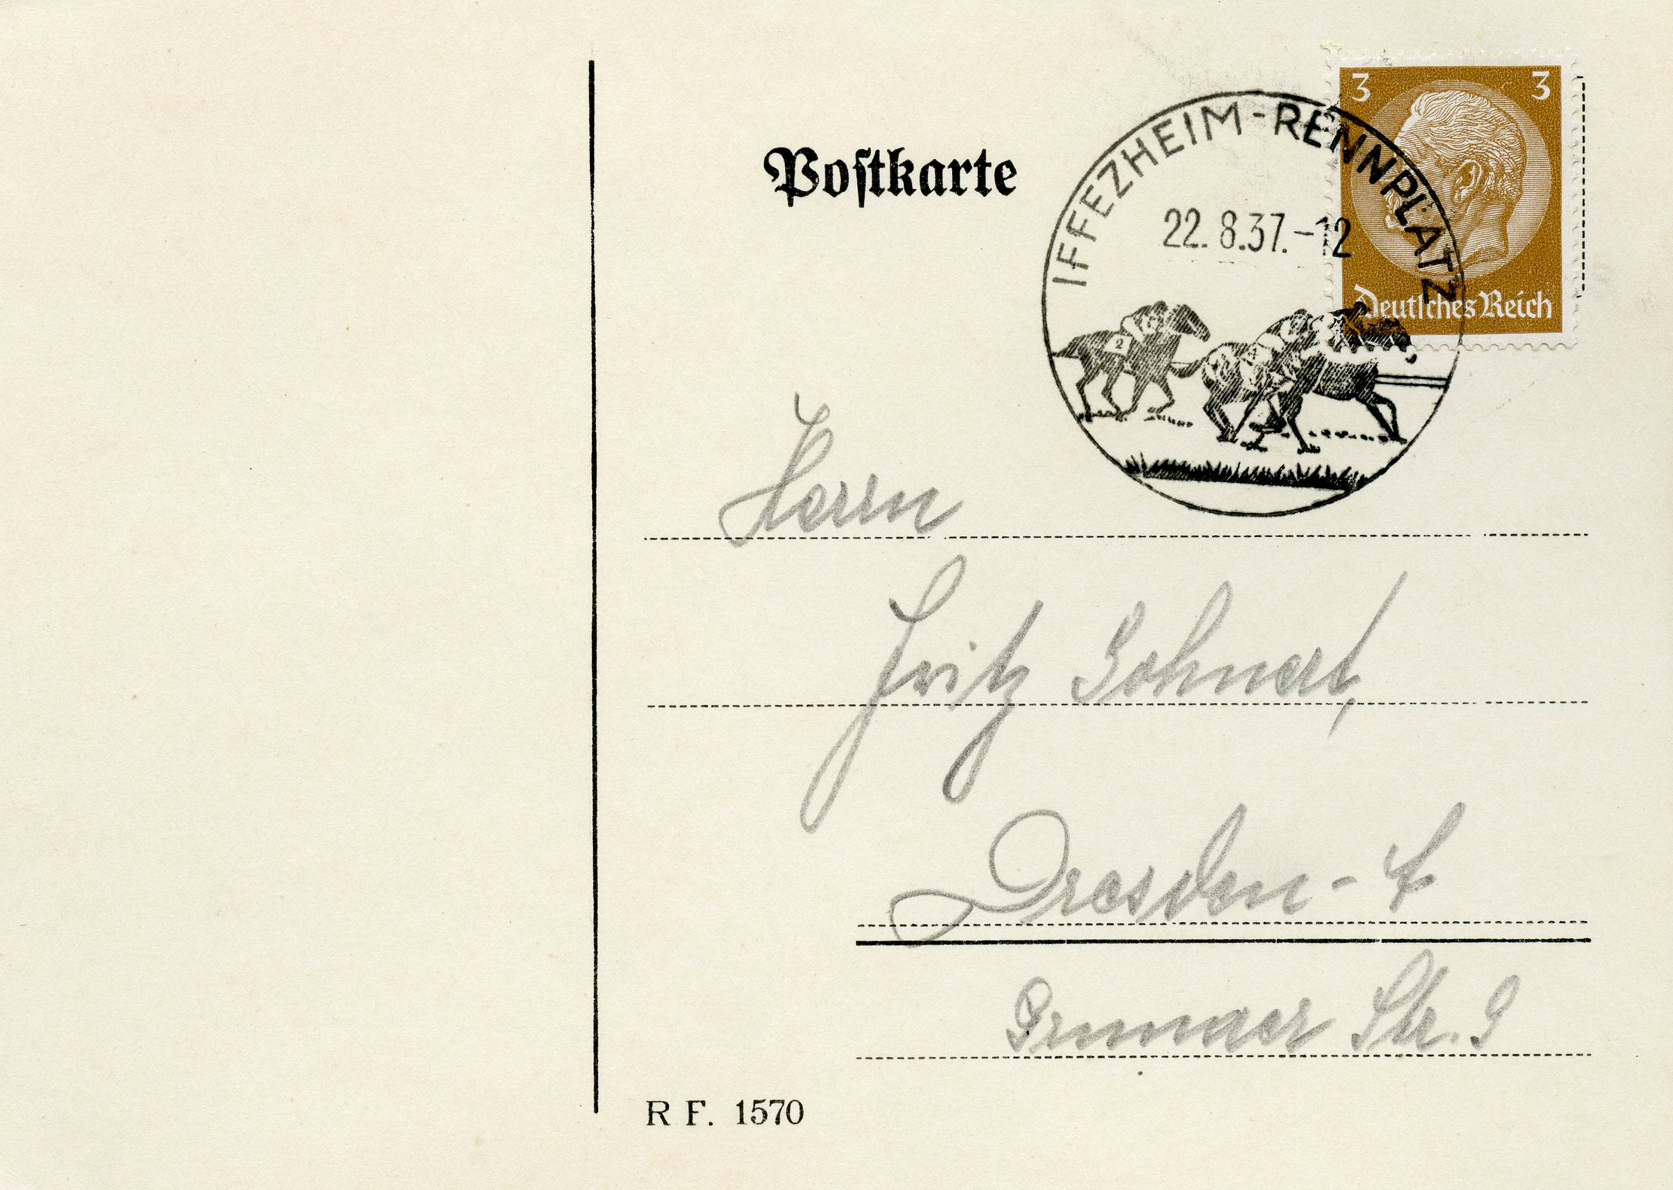 Postkarte
IFFEZHEIM-RENNPLATZ
22.8.37.-12
3 3
Deutsches Reich
2
Herrn
Fritz Gohnert,
Dresden-A
Grunaer Str. 9
R F. 1570